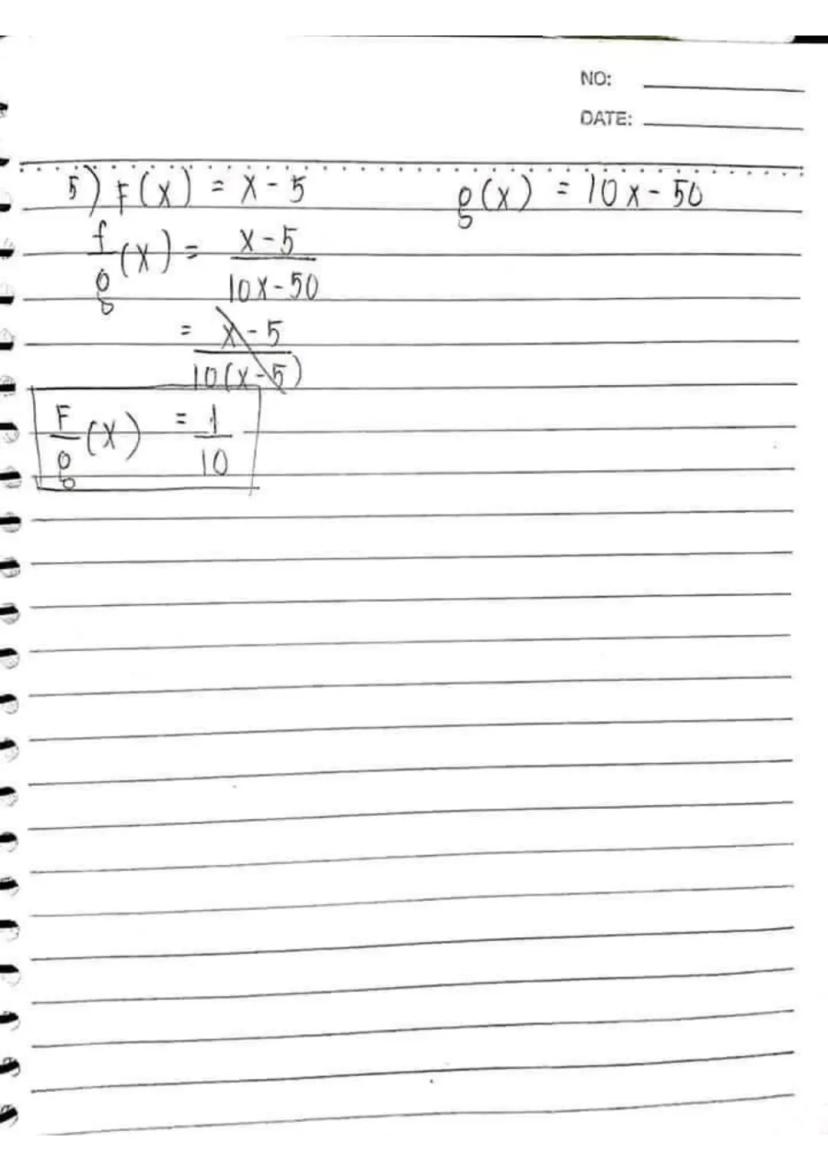 NO:
DATE:
5) F(x) = x - 5 g(x) = 10x - 50
f/g (x) = x - 5 / 10x - 50
= x - 5 / 10(x - 5)
F/g (x) = 1/10